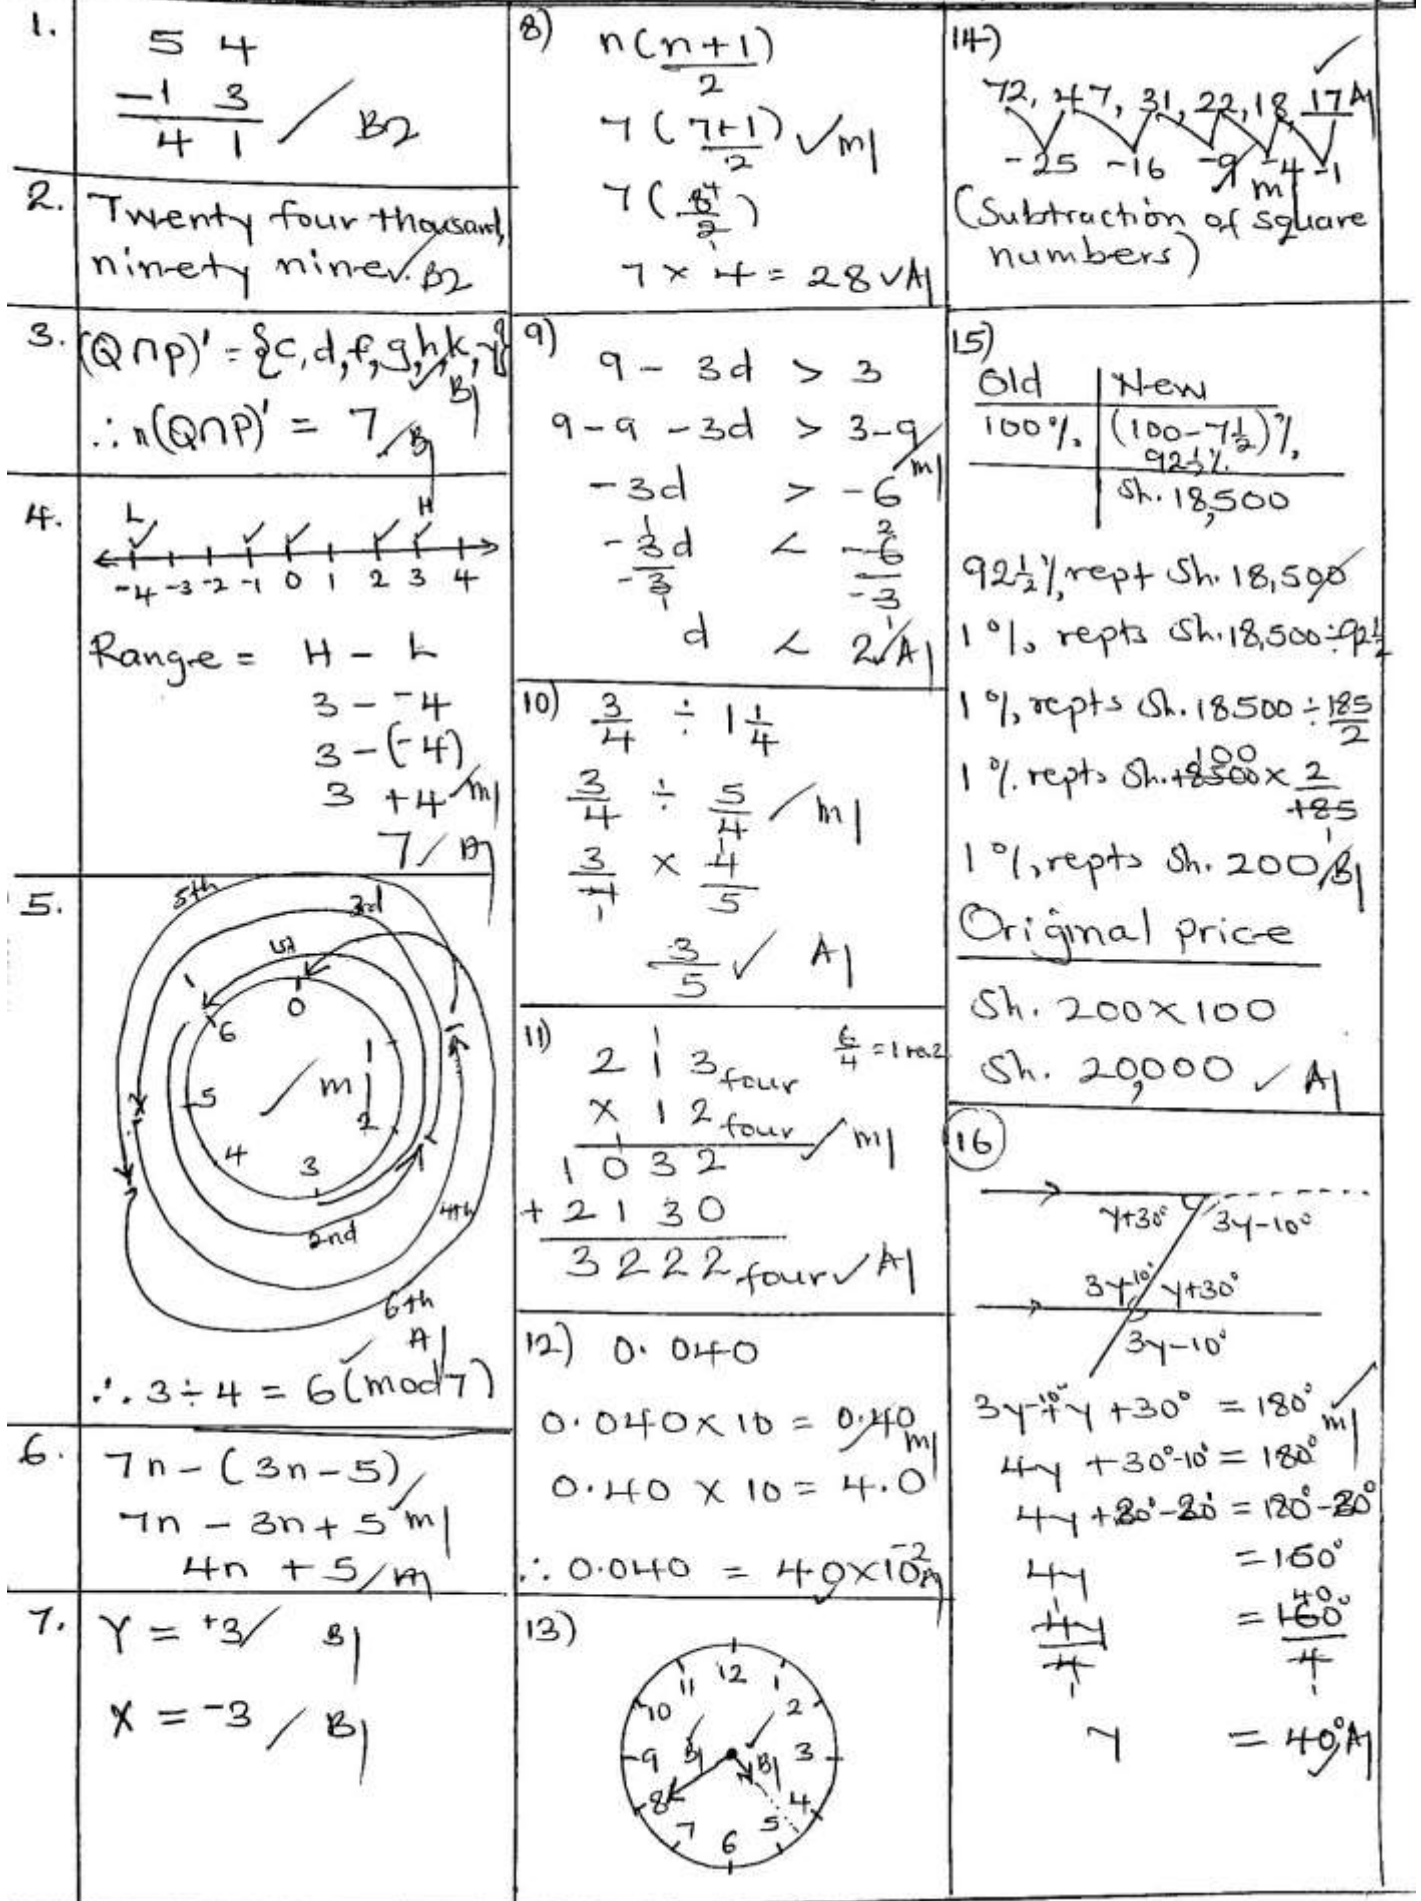 1.
5 4
-1 3
4 1 / B2
2. Twenty four thousand,
ninety nine. B2
3. (Q∩P)' = {c, d, f, g, h, k, y} B1
∴ n(Q∩P)' = 7 B1
4.
L H
-4 -3 -2 -1 0 1 2 3 4
Range = H - L
3 - -4
3 - (-4)
3 + 4 M1
7 A1
5.
5th
3d
1st
0
6 1
5 2
4 3
M1
2nd
4th
6th
A1
∴ 3 ÷ 4 = 6 (mod 7)
6. 7n - (3n - 5)
7n - 3n + 5 M1
4n + 5 / M
7. Y = +3 / B1
X = -3 / B1
8) n(n+1)/2
7(7+1)/2 ✓ M1
7(8/2)
7 × 4 = 28 ✓ A1
9) 9 - 3d > 3
9 - 9 - 3d > 3 - 9 M1
-3d > -6
-3d/-3 < -6/-3
d < 2 A1
10) 3/4 ÷ 1 1/4
3/4 ÷ 5/4 / M1
3/4 × 4/5
3/5 ✓ A1
11) 2 1 3 four 6/4 = 1 re.2
× 1 2 four / M1
1 0 3 2
+ 2 1 3 0
3 2 2 2 four ✓ A1
12) 0.040
0.040 × 10 = 0.40 M1
0.40 × 10 = 4.0
∴ 0.040 = 4.0 × 10⁻² A1
13)
12
11 1
10 2
9 B1 B1 3
8 4
7 5
6
14)
72, 47, 31, 22, 18, 17 A1
-25 -16 -9 -4 -1
M1
(Subtraction of square
numbers)
15)
Old | New
100% | (100 - 7½)%
92½%
Sh. 18,500
92½% rept Sh. 18,500
1% repts Sh. 18,500 ÷ 92½
1% repts Sh. 18500 ÷ 185/2
1% repts Sh. 18500 × 2/185
1% repts Sh. 200 B1
Original price
Sh. 200 × 100
Sh. 20,000 ✓ A1
16
y+30° 3y-10°
3y-10° y+30°
3y-10°
3y-10°+y+30° = 180° M1
4y + 30°-10° = 180°
4y + 20°-20° = 180°-20°
4y = 160°
4y/4 = 160°/4
y = 40° A1